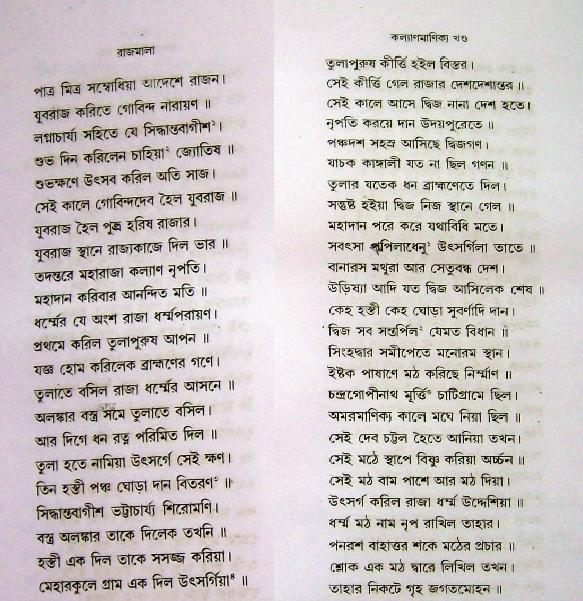 রাজমালা
পাত্র মিত্র সম্বোধিয়া আদেশে রাজন।
যুবরাজ করিতে গোবিন্দ নারায়ণ ॥
লগ্নাচার্য্য সহিতে যে সিদ্ধান্তবাগীশ১।
শুভ দিন করিলেন চাহিয়া২ জ্যোতিষ ॥
শুভক্ষণে উৎসব করিল অতি সাজ।
সেই কালে গোবিন্দদেব হৈল যুবরাজ ॥
যুবরাজ হৈল পুত্র হরিষ রাজার।
যুবরাজ স্থানে রাজ্যকাজে দিল ভার ॥
তদন্তরে মহারাজা কল্যাণ নৃপতি।
মহাদান করিবার আনন্দিত মতি ॥
ধর্ম্মের যে অংশ রাজা ধর্ম্মপরায়ণ।
প্রথমে করিল তুলাপুরুষ আপন ॥
যজ্ঞ হোম করিলেক ব্রাহ্মণের গণে।
তুলাতে বসিল রাজা ধর্ম্মের আসনে ॥
অলঙ্কার বস্ত্র সমে তুলাতে বসিল।
আর দিগে ধন রত্ন পরিমিত দিল ॥
তুলা হতে নামিয়া উৎসর্গে সেই ক্ষণ।
তিন হস্তী পঞ্চ ঘোড়া দান বিতরণ৩ ॥
সিদ্ধান্তবাগীশ ভট্টাচার্য্য শিরোমণি।
বস্ত্র অলঙ্কার তাকে দিলেক তখনি ॥
হস্তী এক দিল তাকে সসজ্জ করিয়া।
মেহারকুলে গ্রাম এক দিল উৎসর্গিয়া৪ ॥
কল্যাণমাণিক্য খণ্ড
তুলাপুরুষ কীর্ত্তি হইল বিস্তর।
সেই কীর্ত্তি গেল রাজার দেশদেশান্তর ॥
সেই কালে আসে দ্বিজ নানা দেশ হতে।
নৃপতি করয়ে দান উদয়পুরেতে ॥
পঞ্চদশ সহস্র আসিছে দ্বিজগণ।
যাচক কাঙ্গালী যত না ছিল গণন ॥
তুলার যতেক ধন ব্রাহ্মণেতে দিল।
সন্তুষ্ট হইয়া দ্বিজ নিজ স্থানে গেল ॥
মহাদান পরে করে যথাবিধি মতে।
সবৎসা উৎসর্গিলা তাতে ॥
বানারস মথুরা আর সেতুবন্ধ দেশ।
উড়িষ্যা আদি যত দ্বিজ আসিলেক শেষ ॥
কেহ হস্তী কেহ ঘোড়া সুবর্ণাদি দান।
দ্বিজ সব সন্তর্পিল২ যেমত বিধান ॥
সিংহদ্বার সমীপেতে মনোরম স্থান।
ইষ্টক পাষাণে মঠ করিছে নির্ম্মাণ ॥
চন্দ্রগোপীনাথ মূর্ত্তি৩ চাটিগ্রামে ছিল।
অমরমাণিক্য কালে মঘে নিয়া ছিল ॥
সেই দেব চট্টল হৈতে আনিয়া তখন।
সেই মঠে স্থাপে বিষ্ণু করিয়া অর্চ্চন ॥
সেই মঠ বাম পাশে আর মঠ দিয়া।
উৎসর্গ করিল রাজা ধর্ম্ম উদ্দেশিয়া ॥
ধর্ম্ম মঠ নাম নৃপ রাখিল তাহার।
পনরশ বাহাত্তর শকে মঠের প্রচার ॥
শ্লোক এক মঠ দ্বারে লিখিল তখন।
তাহার নিকটে গৃহ জগতমোহন ॥